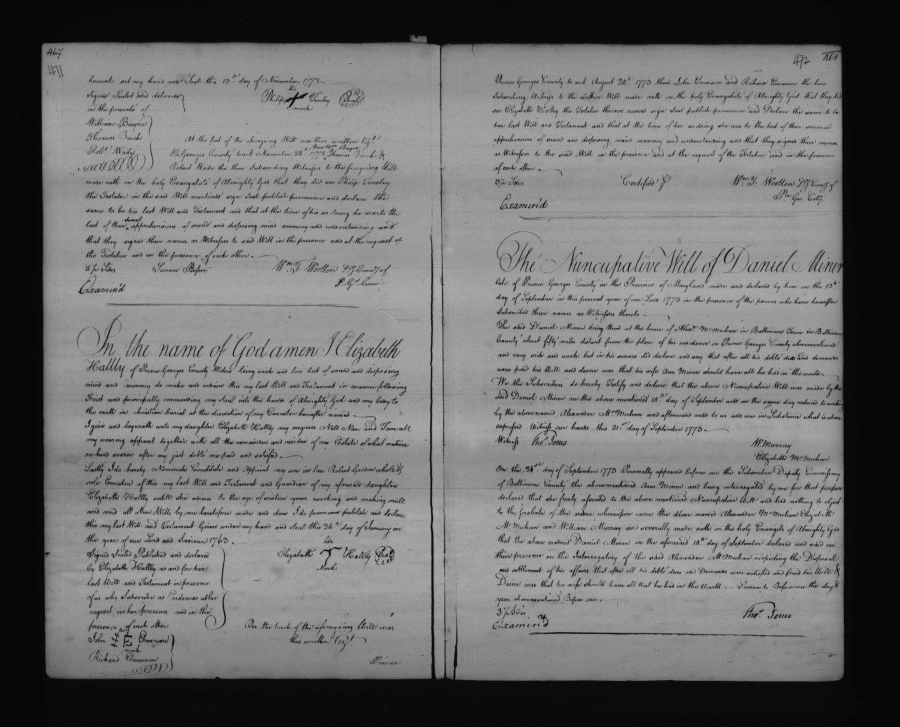 471
hereunto set my hand and Seal this 13th day of November 1772.
Signed Sealed and delivered
in the presence of
his
Philip Tenley Seal
mark
William Bayne
Thomas
Robt Wade
At the foot of the foregoing Will was thus written
Pr Georges County November 25th 1772 Thomas &
Robert Wade the Subscribing Witnesses to the foregoing Will
made oath on the holy Evangelists of Almighty God that they did see Philip Tenley
the Testator in the said Will mentioned sign Seal publish pronounce and declare the
same to be his last Will and Testament and that at the time of his so doing he was to the
best of their apprehensions of sound and disposing mind and memory and understanding and
that they signed their names as Witnesses to said Will in the presence and at the request of
the Testator and in the presence of each other.
Wm T. Wootton Dy Comy of
Pr Geo. County
Examin'd
In the name of God amen I Elizabeth
Hallby of Prince Georges County Widow being weak and low but of sound and disposing
mind and memory do make and ordain this my last Will and Testament in manner following
First and principally committing my soul into the hands of Almighty God and my body to
the earth in christian burial at the discretion of my Executor hereafter named.
I give and bequeath unto my daughter Elizabeth Hallby my negroes and
my wearing apparel together with all the remainder and residue of my Estate of what nature
or kind soever after my just debts are paid and satisfied.
Lastly I do hereby Nominate Constitute and Appoint my son in law Robert Gordon whole &
sole Executor of this my last Will and Testament and Guardian of my aforesaid daughter
Elizabeth Hallby until she come to the age of sixteen years revoking and making null
and void all other Wills by me heretofore made and done I do pronounce publish and declare
this my last Will and Testament Given under my hand and seal this 26th day of January in
the year of our Lord and Saviour 1763.
Signed Sealed Published and declared
by Elizabeth Hallby as and for her
last Will and Testament in presence
of us who Subscribe as Evidences at her
request in her presence and in the
presence of each other
her
Elizabeth T Hallby Seal
Mark
John
mark
Richard
On the back of the aforegoing Will was
thus written
Prince
472
Prince Georges County to wit August 28th 1773 then John and Richard the two
Subscribing Witnesses to the within Will made oath on the holy Evangelists of Almighty God that they did
see Elizabeth Hallby the Testator therein named sign Seal publish pronounce and Declare the same to be
her last Will and Testament and that at the time of her so doing she was to the best of their
apprehensions of sound and disposing mind memory and understanding and that they signed their names
as Witnesses to the said Will in the presence and at the request of the Testator and in the presence
of each other.
Certified
Wm T. Wootton Dy Comy of
Pr Geo. Coty
Examin'd
The Nuncupative Will of Daniel Miner
late of Prince Georges County in the Province of Maryland made and declared by him on the 13th
day of September in this present year of our Lord 1773 in the presence of the persons who have hereafter
subscribed their names as Witnesses thereto.
The said Daniel Miner being then at the house of Alexr McMechen in Baltimore Town in Baltimore
County about fifty miles distant from the place of his residence in Prince Georges County abovementioned
and very sick and weak but in his senses did declare and say that after all his debts dues and demands
were paid his Will and desire was that his wife Ann Miner should have all he had in the world.
We the Subscribers do hereby Testify and declare that the above Nuncupative Will was made by the
said Daniel Miner on the above mentioned 13th day of September and on the same day reduced to writing
by the abovenamed Alexander McMechen and afterwards read to us and was in Substance what is above
expressed Witness our hands this 21st day of September 1773.
Witness Thos Jones
Wm Murray
Elizabeth McMechen
On the 21st day of September 1773 Personally appeared before me the Subscriber Deputy Commissary
of Baltimore County the abovementioned Ann Miner and being interrogated by me for that purpose
declared that she freely assented to the above mentioned Nuncupative Will and had nothing to object
to the probate of the same whereupon came the above named Alexander McMechen Elizabeth
McMechen and William Murray and severally made oath on the holy Evangels of Almighty God
that the above named Daniel Miner on the aforesaid 13th day of September declared and said in
their presence in the Interrogatory of the said Alexander McMechen respecting the Disposal
and settlement of his affairs that after all his debts dues and Demands were satisfied and paid his Will &
Desire was that his wife should have all that he had in the World. Sworn to Before me the day &
year abovementioned Before me.
Thos Jones
Examin'd